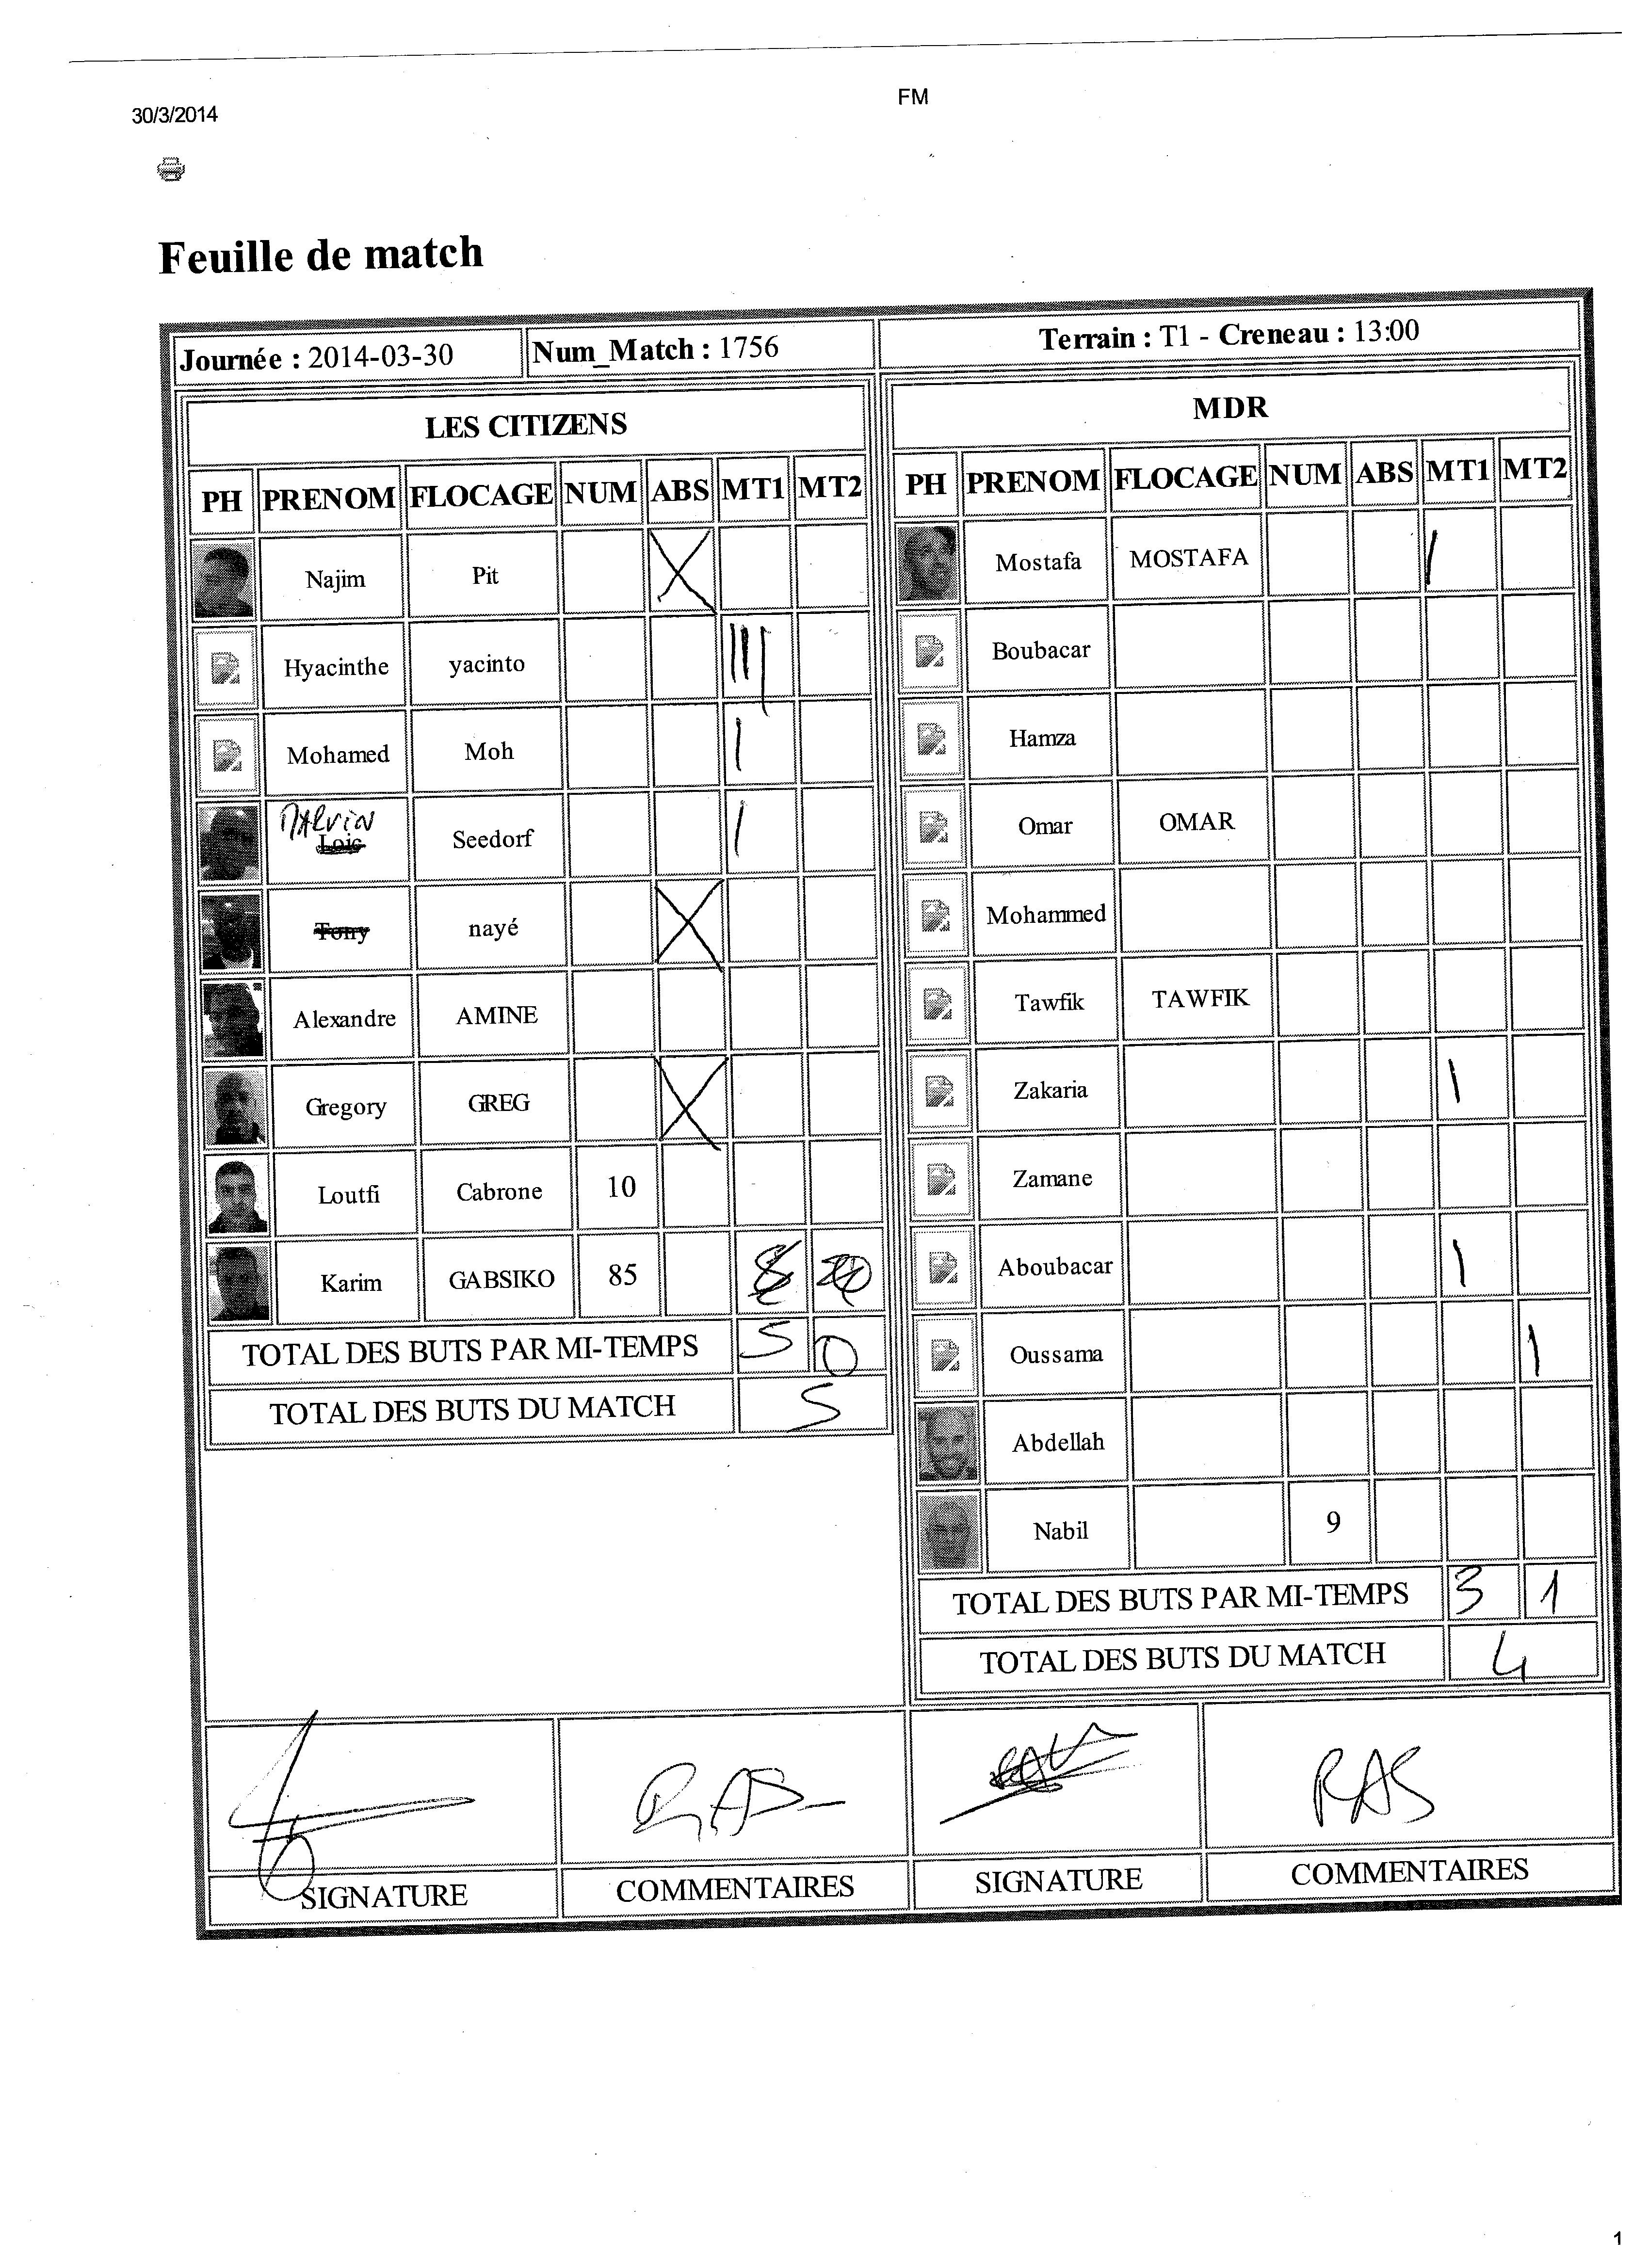 30/3/2014
FM
Feuille de match
Journée : 2014-03-30 Num_Match : 1756 Terrain : T1 - Creneau : 13:00
LES CITIZENS
PH PRENOM FLOCAGE NUM ABS MT1 MT2
Najim Pit X
Hyacinthe yacinto |||
Mohamed Moh |
MALVIN
Loic Seedorf |
Tony nayé X
Alexandre AMINE
Gregory GREG X
Loutfi Cabrone 10
Karim GABSIKO 85
TOTAL DES BUTS PAR MI-TEMPS 5 0
TOTAL DES BUTS DU MATCH 5
MDR
PH PRENOM FLOCAGE NUM ABS MT1 MT2
Mostafa MOSTAFA |
Boubacar
Hamza
Omar OMAR
Mohammed
Tawfik TAWFIK
Zakaria |
Zamane
Aboubacar |
Oussama |
Abdellah
Nabil 9
TOTAL DES BUTS PAR MI-TEMPS 3 1
TOTAL DES BUTS DU MATCH 4
RAS RAS
SIGNATURE COMMENTAIRES SIGNATURE COMMENTAIRES
1